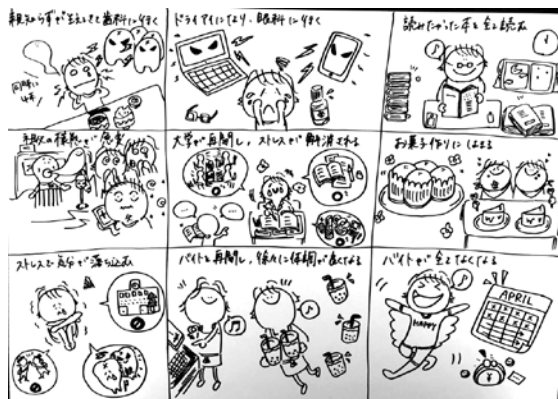 親知らずが生えてきて歯科に行く
同時に
4本!
ドライアイになり、眼科に行く
読みたかった本を全て読む
大学が再開し、ストレスが解消される
お菓子作りにはまる
ストレスで気分が落ち込む
バイトも再開し、徐々に体調が良くなる
バイトが全てなくなる
HAPPY
APRIL